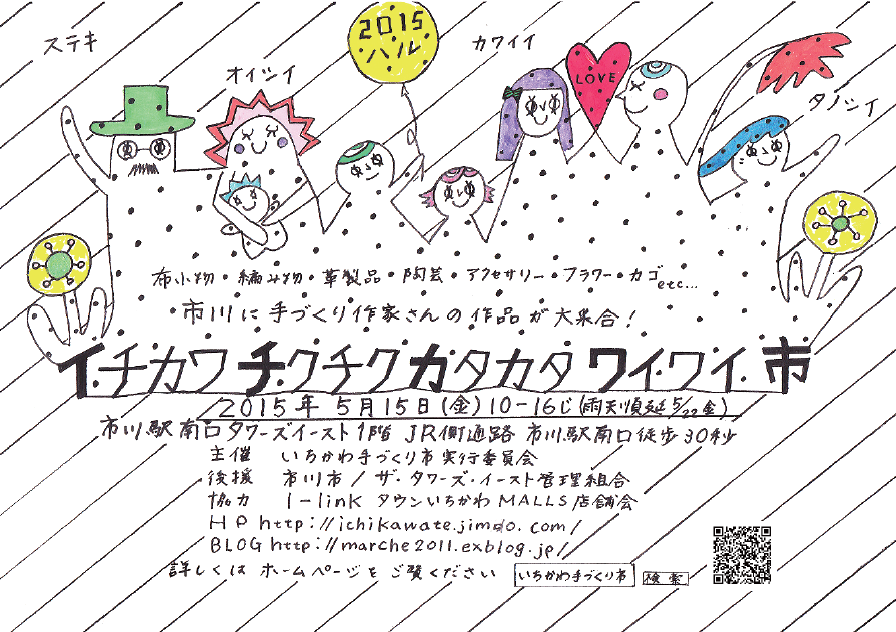 ステキ
オイシイ
2015
ハル
カワイイ
LOVE
タノシイ
布小物・編み物・革製品・陶芸・アクセサリー・フラワー・カゴetc...
市川に手づくり作家さんの作品が大集合!
イチカワチクチクカタカタワイワイ市
2015年5月15日(金)10-16じ(雨天順延5/22金)
市川駅南口タワーズイースト1階 JR側通路 市川駅南口徒歩30秒
主催 いちかわ手づくり市実行委員会
後援 市川市/ザ・タワーズ・イースト管理組合
協力 I-linkタウンいちかわMALLS店舗会
HP http://ichikawate.jimdo.com/
BLOG http://marche2011.exblog.jp/
詳しくは ホームページを ご覧ください いちかわ手づくり市 検索